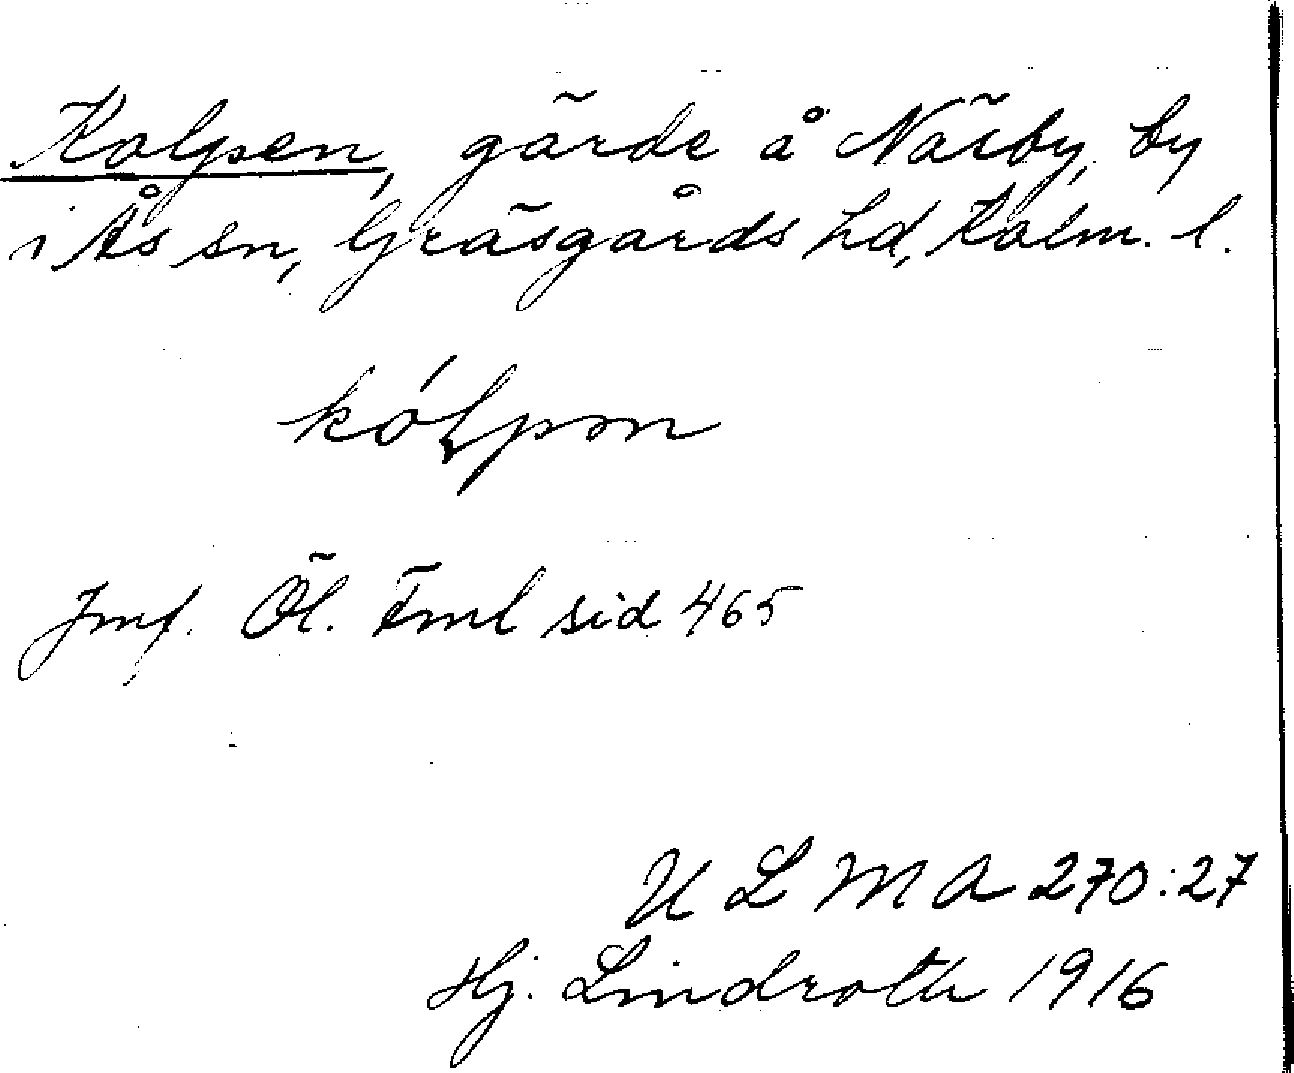 Kolpen, gärde å Närby, by
i Ås sn, Gräsgårds hd, Kalm. l.
kólpən
Jmf. Öl. Fml sid 465
U L M A 270:27
Hj. Lindroth 1916